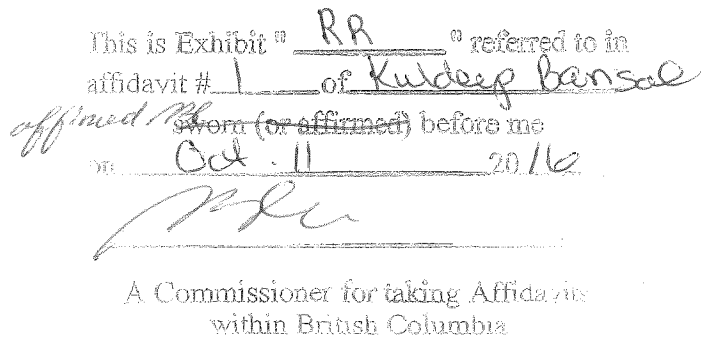 This is Exhibit " RR " referred to in
affidavit # 1 of Kuldeep Bansal
affirmed sworn (or affirmed) before me
on Oct. 11 2016
A Commissioner for taking Affidavits
within British Columbia